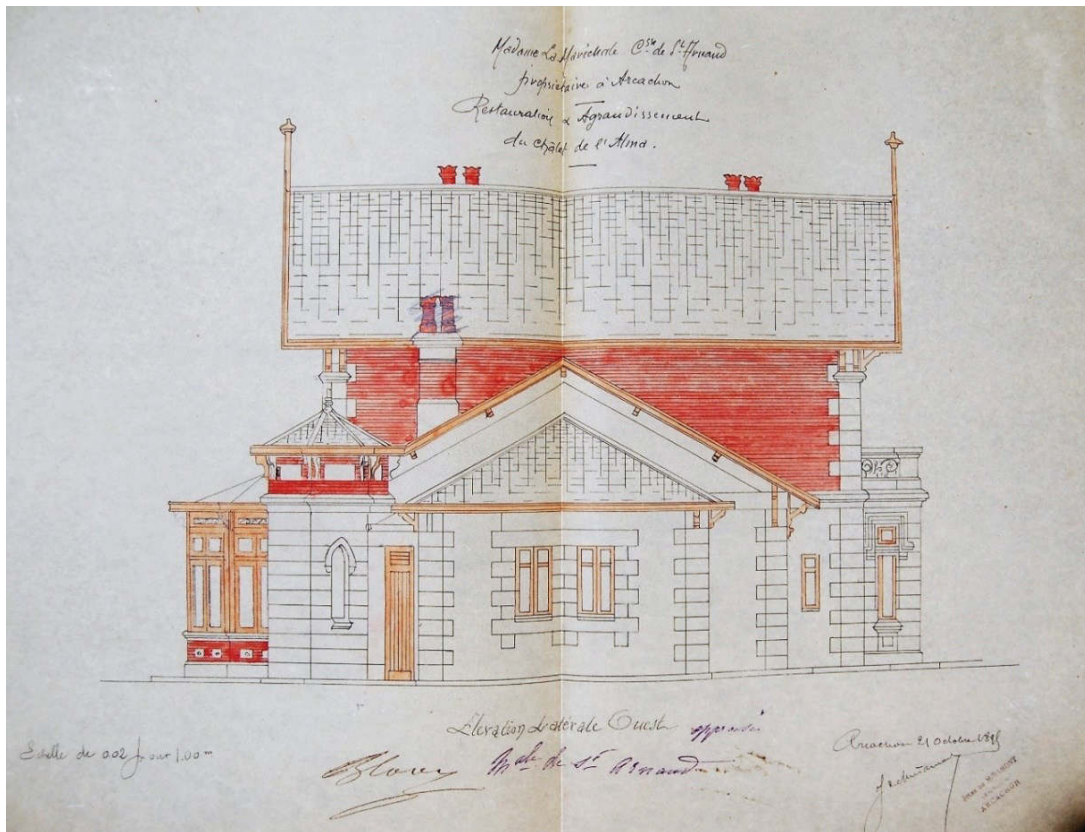 Madame La Maréchale Csse de St Arnaud
propriétaire à Arcachon
Restauration & Agrandissement
du Châlet de l'Alma.
Élévation Latérale Ouest
approuvé
Echelle de 0.02 pour 1.00 m
Male de St Arnaud
Arcachon 21 Octobre
ARCACHON